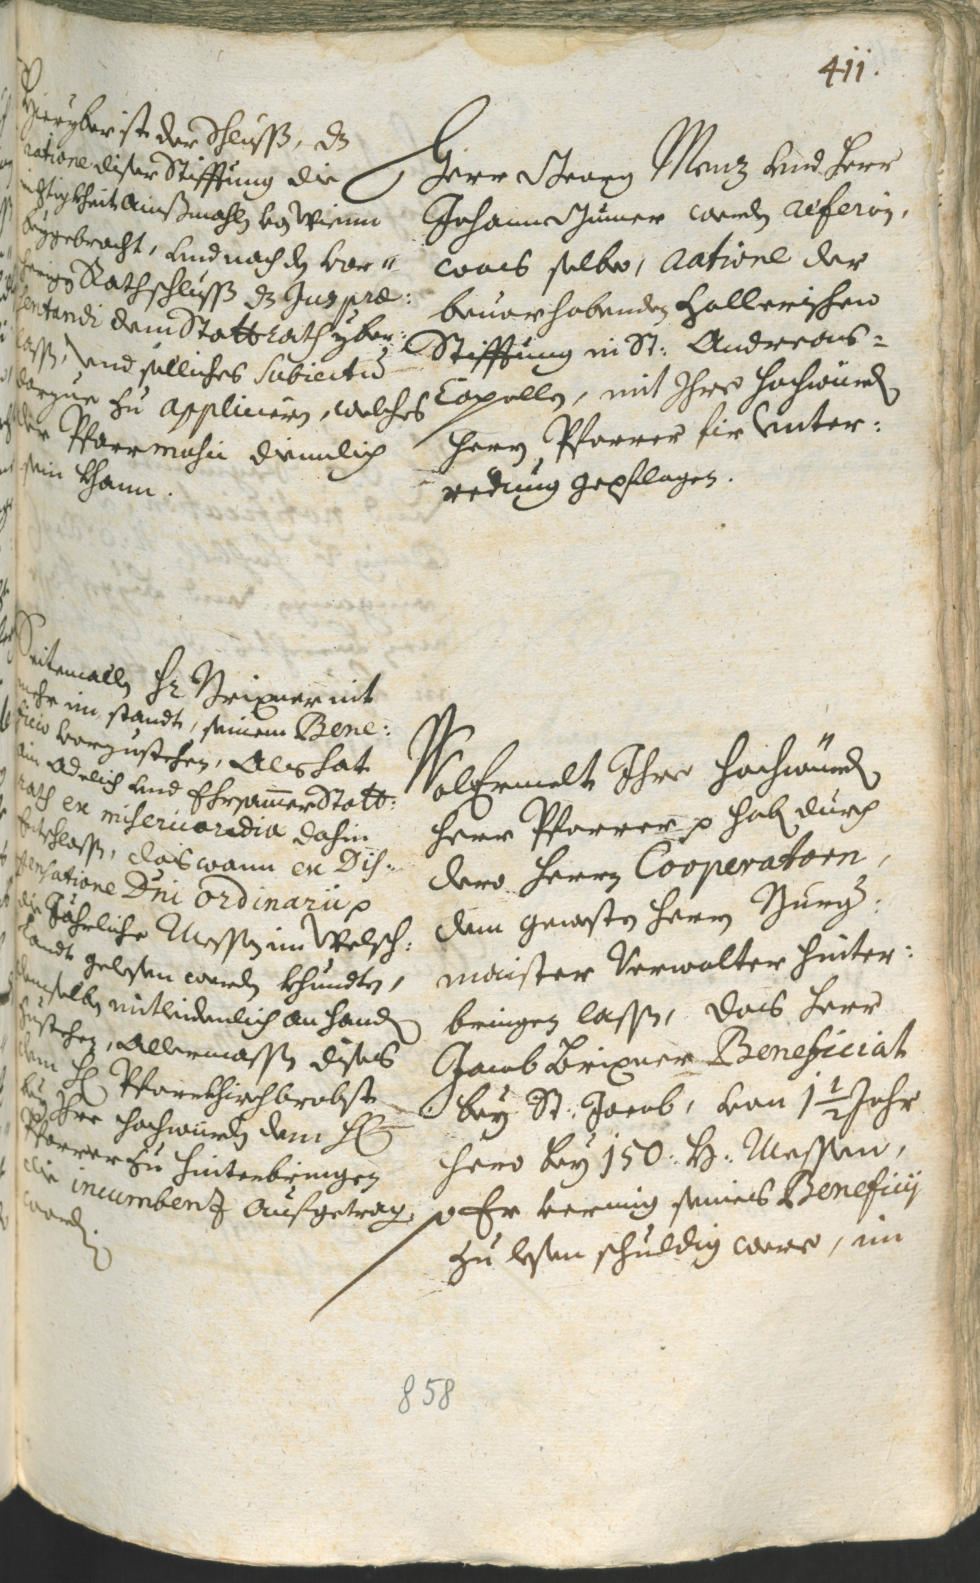 411.
Hieryber ist der Schluss, dz
ratione diser Stifftung die
richtigkheit ainssmahls von Wienn
beygebracht, und nach dem vor=
herigen Rathschluss dz Jus præ:
sentandi dem Stattrath yber:
lassen, und solliches Subiectum
darzue zu appliciern, welches
der Pfarrmusic diennlich
sein khann.
Herr Georg Menz und Herr
Johann Gumer werden referiern,
was selbe, ratione der
bevorhabenden Hallerischen
Stifftung in St: Andreas=
Capellen, mit Ihro Hochwürden
Herrn Pfarrer fir Unter:
redung gepflogen.
Seitemallen Hr Brixner nit
mehr im standt, seinem Bene:
ficio vorzustehen, Als hat
ein Adelich und Ehrsammer Statt:
rath ex misericordia dahin
beschlossen, dass wann ex Dis:
pensatione Dni Ordinarii p
die Jährliche Messen im Welsch:
landt gelesen werden khundten,
demselben mitleidenlich an Handt
zustehen, Allermassen dises
dem H Pfarrkhirchbrobste
bey Ihro Hochwürden dem H
Pfarrer zu hinterbringen
die incumbenz aufgetragen
worden.
Wolermelt Ihro Hochwürden
Herr Pfarrer p hab durch
dero Herrn Cooperatorn,
dem gewesten Herrn Burg:
maister Verwalter hinter:
bringen lassen, dass Herr
Jacob Brixner Beneficiat
bey St: Jacob, von 1 1/2 Jahr
hero bey 150 H: Messen,
so Er vermög seines Beneficij
zu lesen schuldig were, im
858